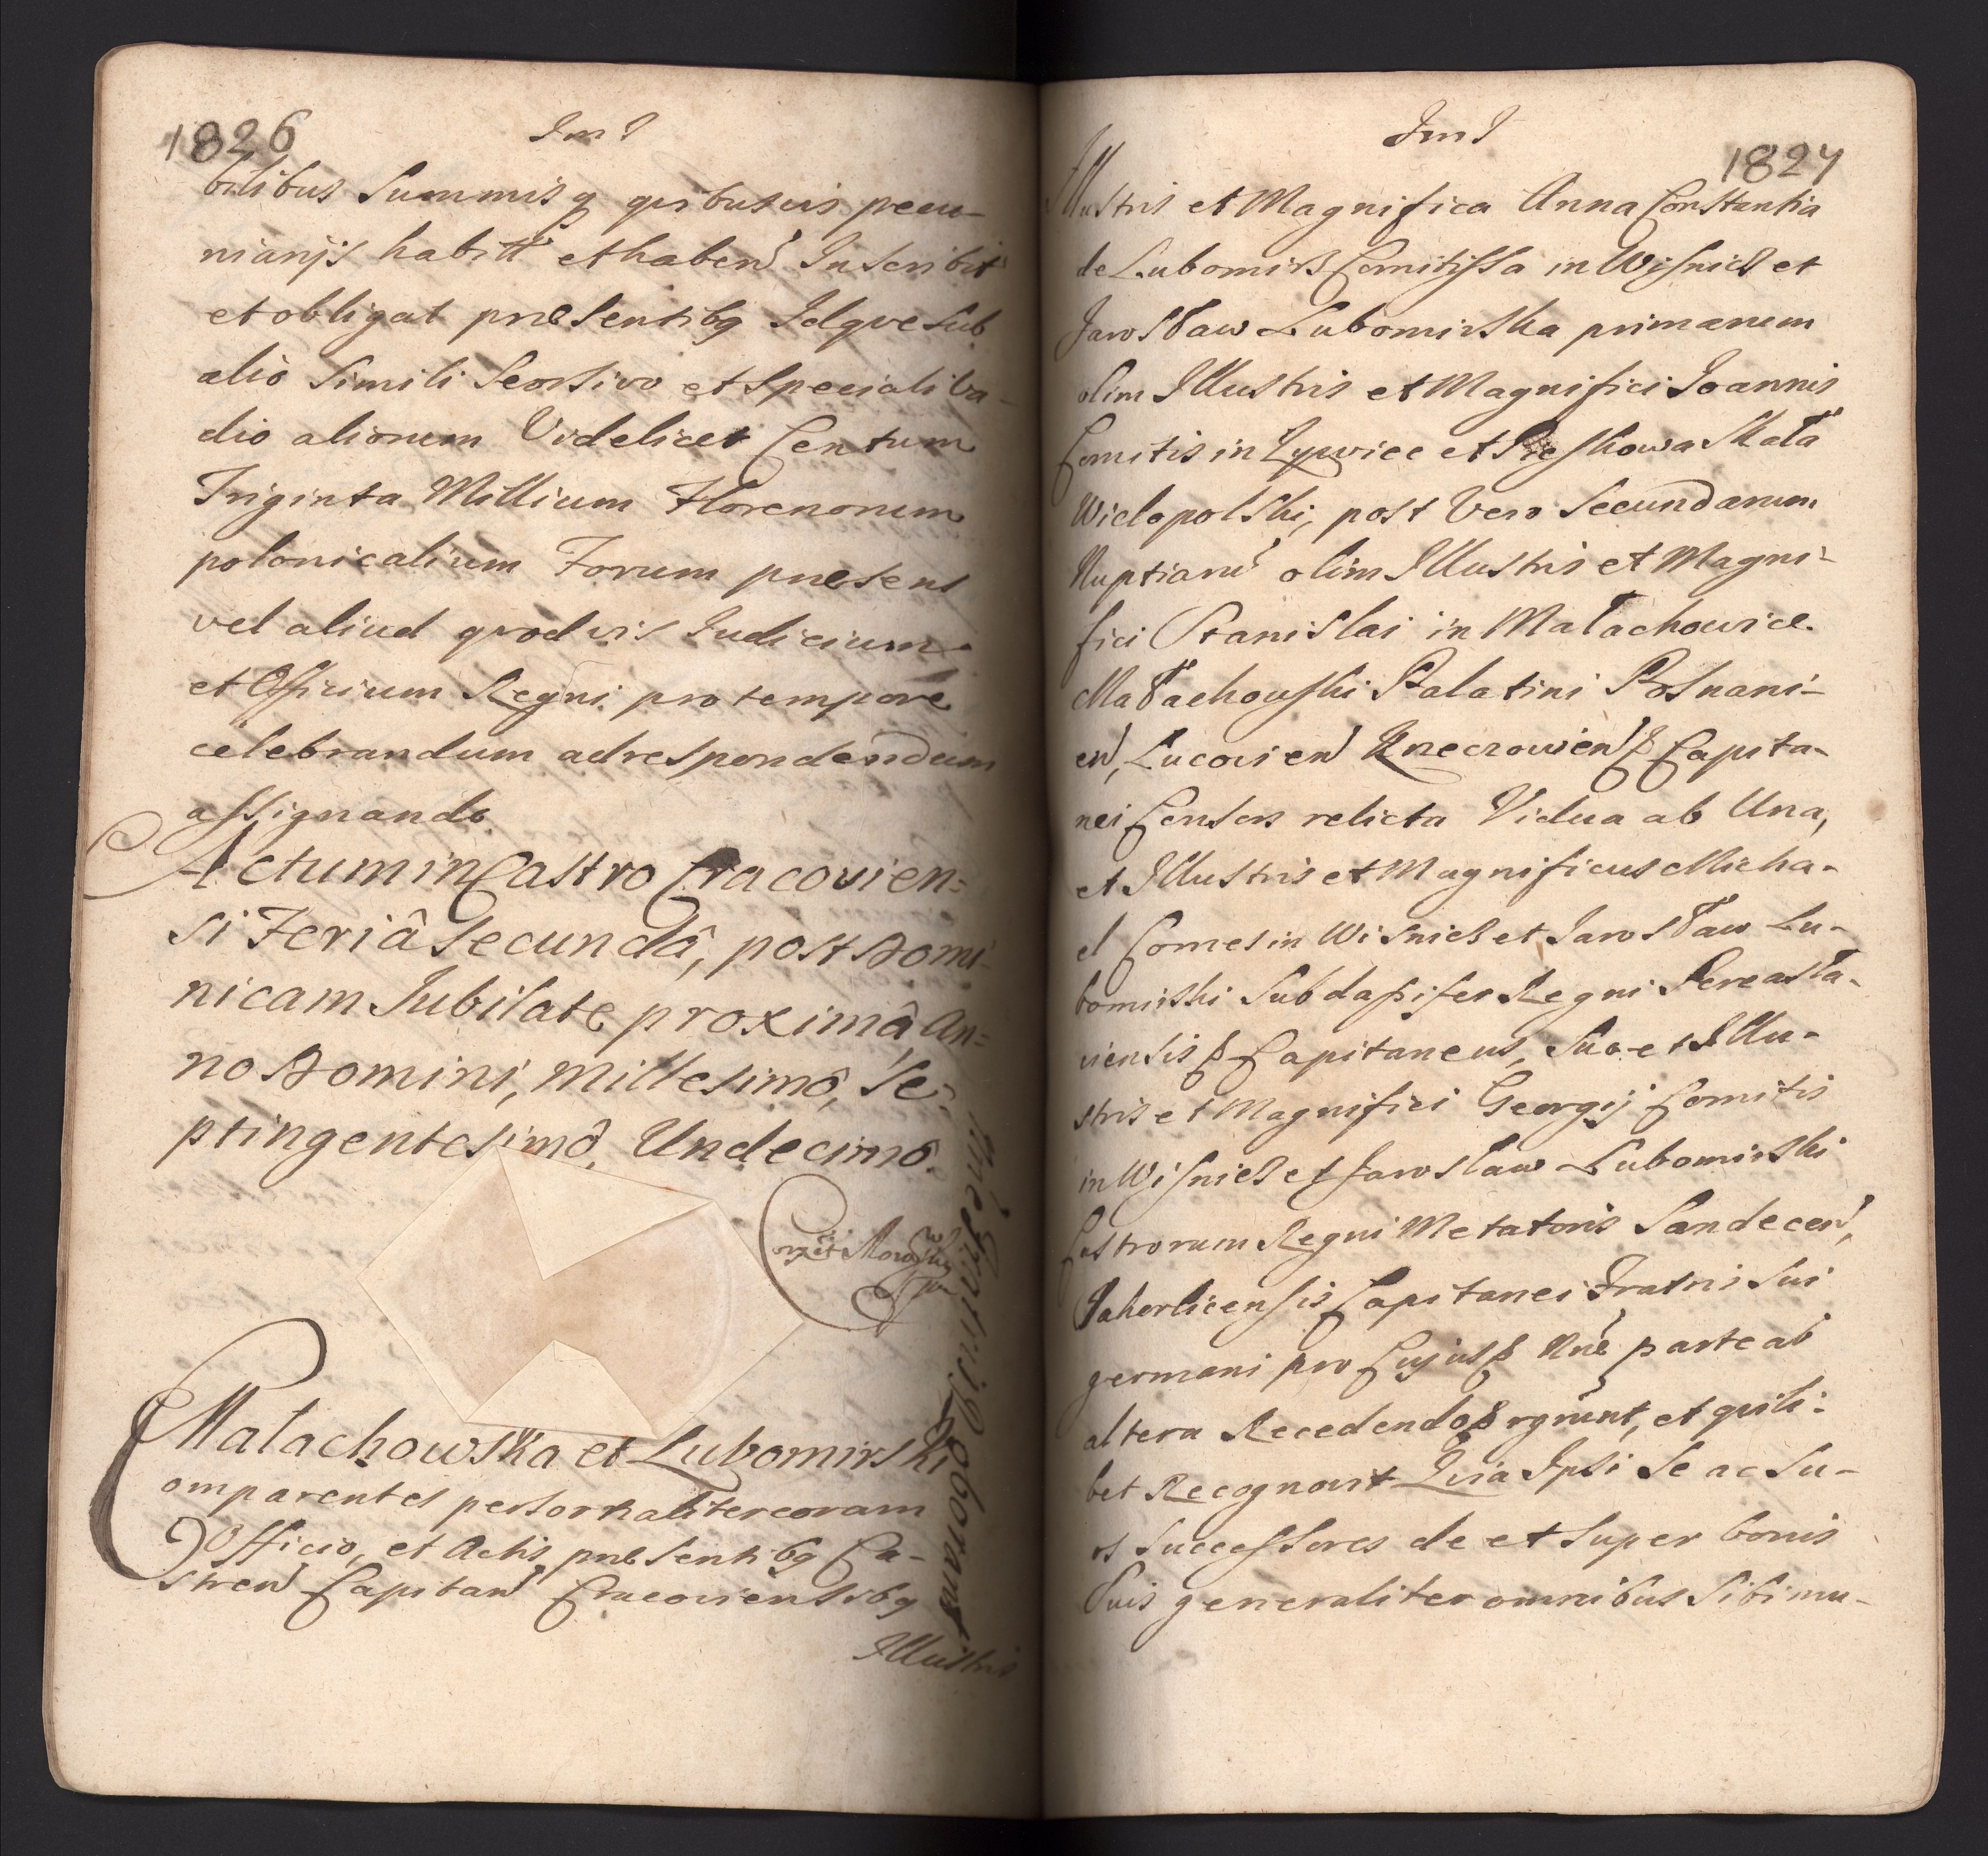 1826
bilibus Summisq quibusvis pecu-
niarijs habitt et haben Inscribit
et obligat præsentibq Idqve sub
alio Simili Seorsivo et Speciali Va-
dio aliorum Videlicet Centum
Triginta Millium Florenorum
polonicalium Forum præsens
vel aliud qvodvis Iudicium
et Officium Regni pro tempore
celebrandum ad respondendum
assignando
Actum in Castro Cracovien=
si Feriâ Secundâ, post Domi-
nicam Iubilate proximâ An=
no Domini, Millesimô, Se-
ptingentesimô, Undecimô.
Małachowska et Lubomirski
Comparentes personaliter coram
Officio, et Actis præsentibq Ca-
stren Capitan Cracoviensibq
Illustris
1827
Illustris et Magnifica Anna Constantia
de Lubomirz Comitissa in Wisnicz et
Jarosław Lubomirska primarum
olim Illustris et Magnifici Joannis
Comitis in Zywiec et Pieskowa Skała
Wielopolski, post Vero Secundarum
Nuptiaru olim Illustris et Magni-
fici Stanislai in Małachowice
Małachowski Palatini Posnani-
en, Lucovien Knezrowien & Capita-
nei Consors relicta Vidua ab Una,
et Illustris et Magnificus Micha-
el Comes in Wisnicz et Jarosław Lu-
bomirski Subdapifer Regni Pereasła-
viensis & Capitaneus, Suo et Illu-
stris et Magnifici Georgij Comitis
in Wisnicz et Jarosław Lubomirski
Castrorum Regni Metatoris Sandecen,
Kahorlicensis Capitanei Fratris Sui
germani pro Cujus & Rnê parte ab
altera Recedendo & rgrunt, et quili-
bet Recognovit Quia Ipsi Se ac Su-
os Successores de et Super bonis
Suis generaliter omnibus Sibi mu-